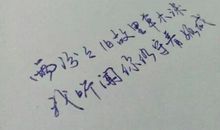 雨纷々旧故里草木深
我听闻你仍守着孤城